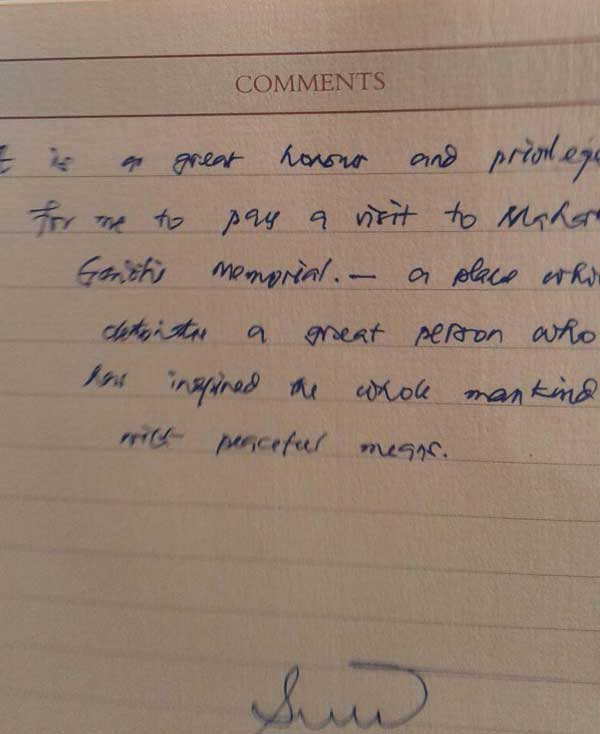 COMMENTS
is a great honour and privilege
for me to pay a visit to Maha
Gandhi's Memorial. — a place whi
a great person who
has inspired the whole mankind
with peaceful means.